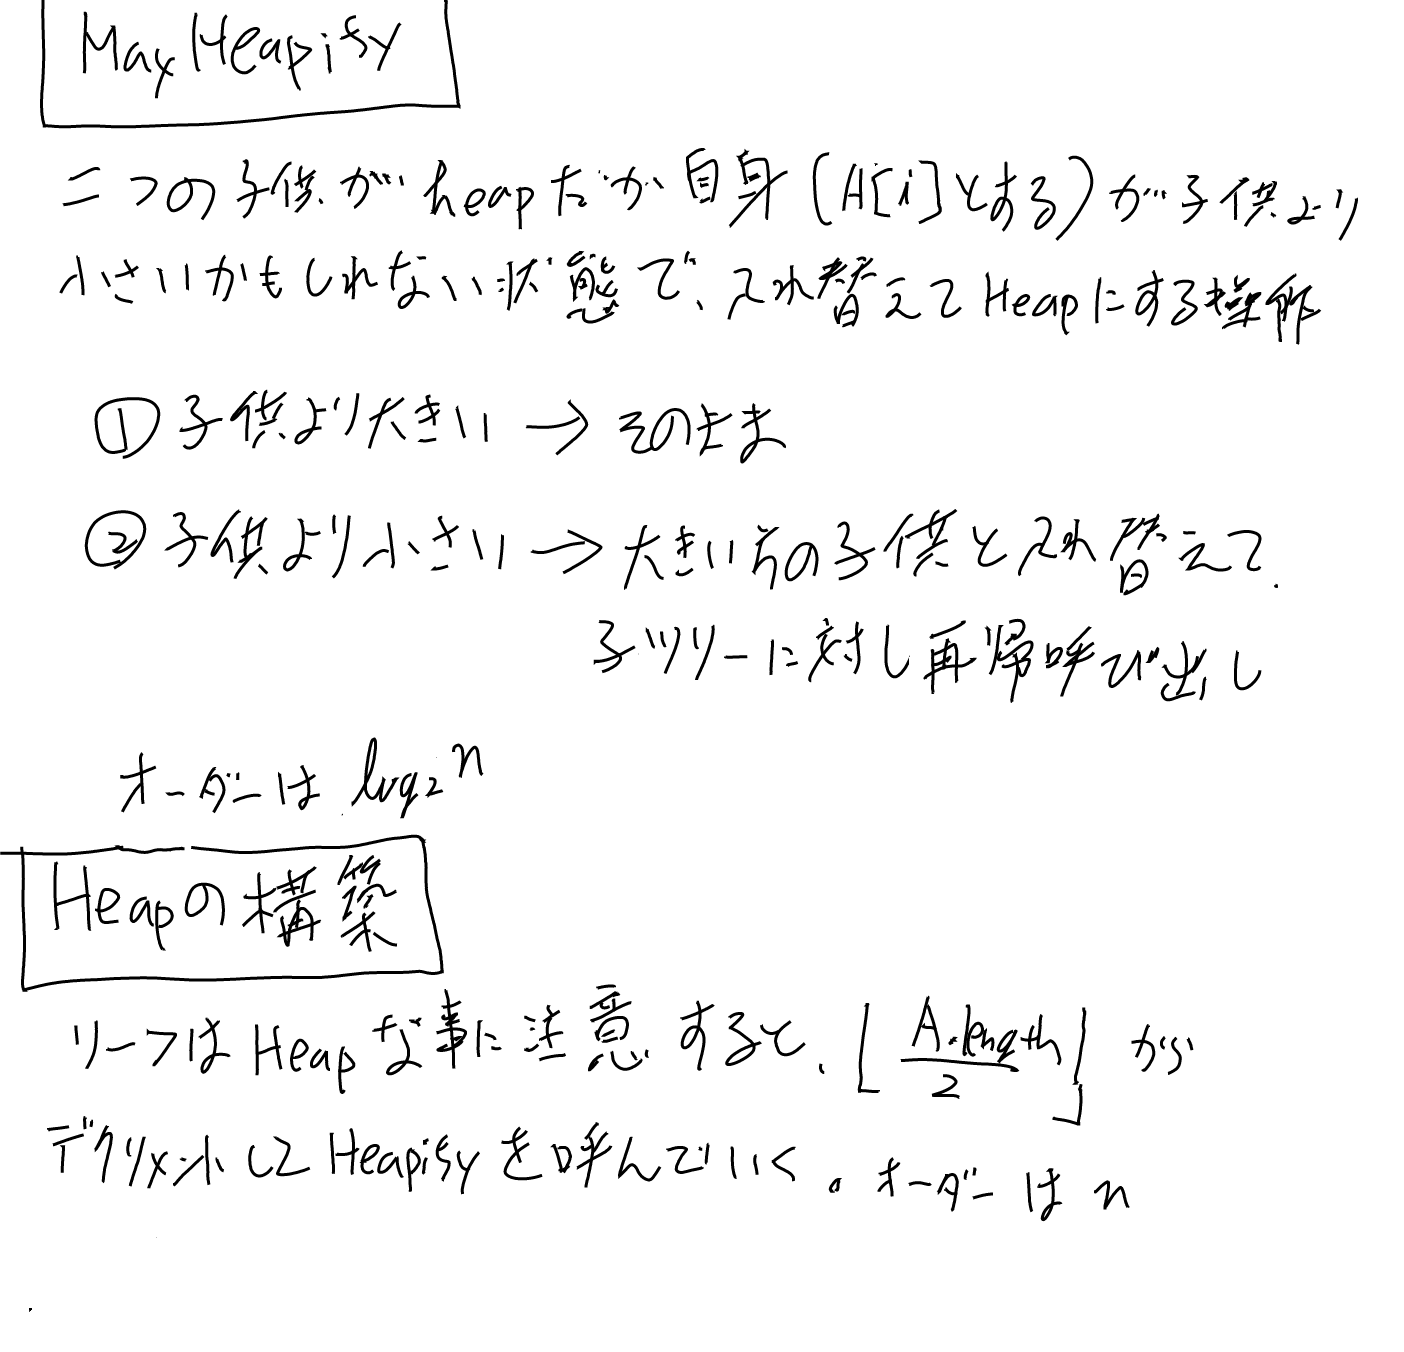 MaxHeapify
二つの子供がheapだが自身(A[i]とする)が子供より
小さいかもしれない状態で、入れ替えてHeapにする操作
① 子供より大きい → そのまま
② 子供より小さい → 大きい方の子供と入れ替えて、
子ツリーに対し再帰呼び出し
オーダーは log₂n
Heapの構築
リーフはHeapな事に注意すると、⌊A.length/2⌋ から
デクリメントしてHeapifyを呼んでいく。オーダーは n